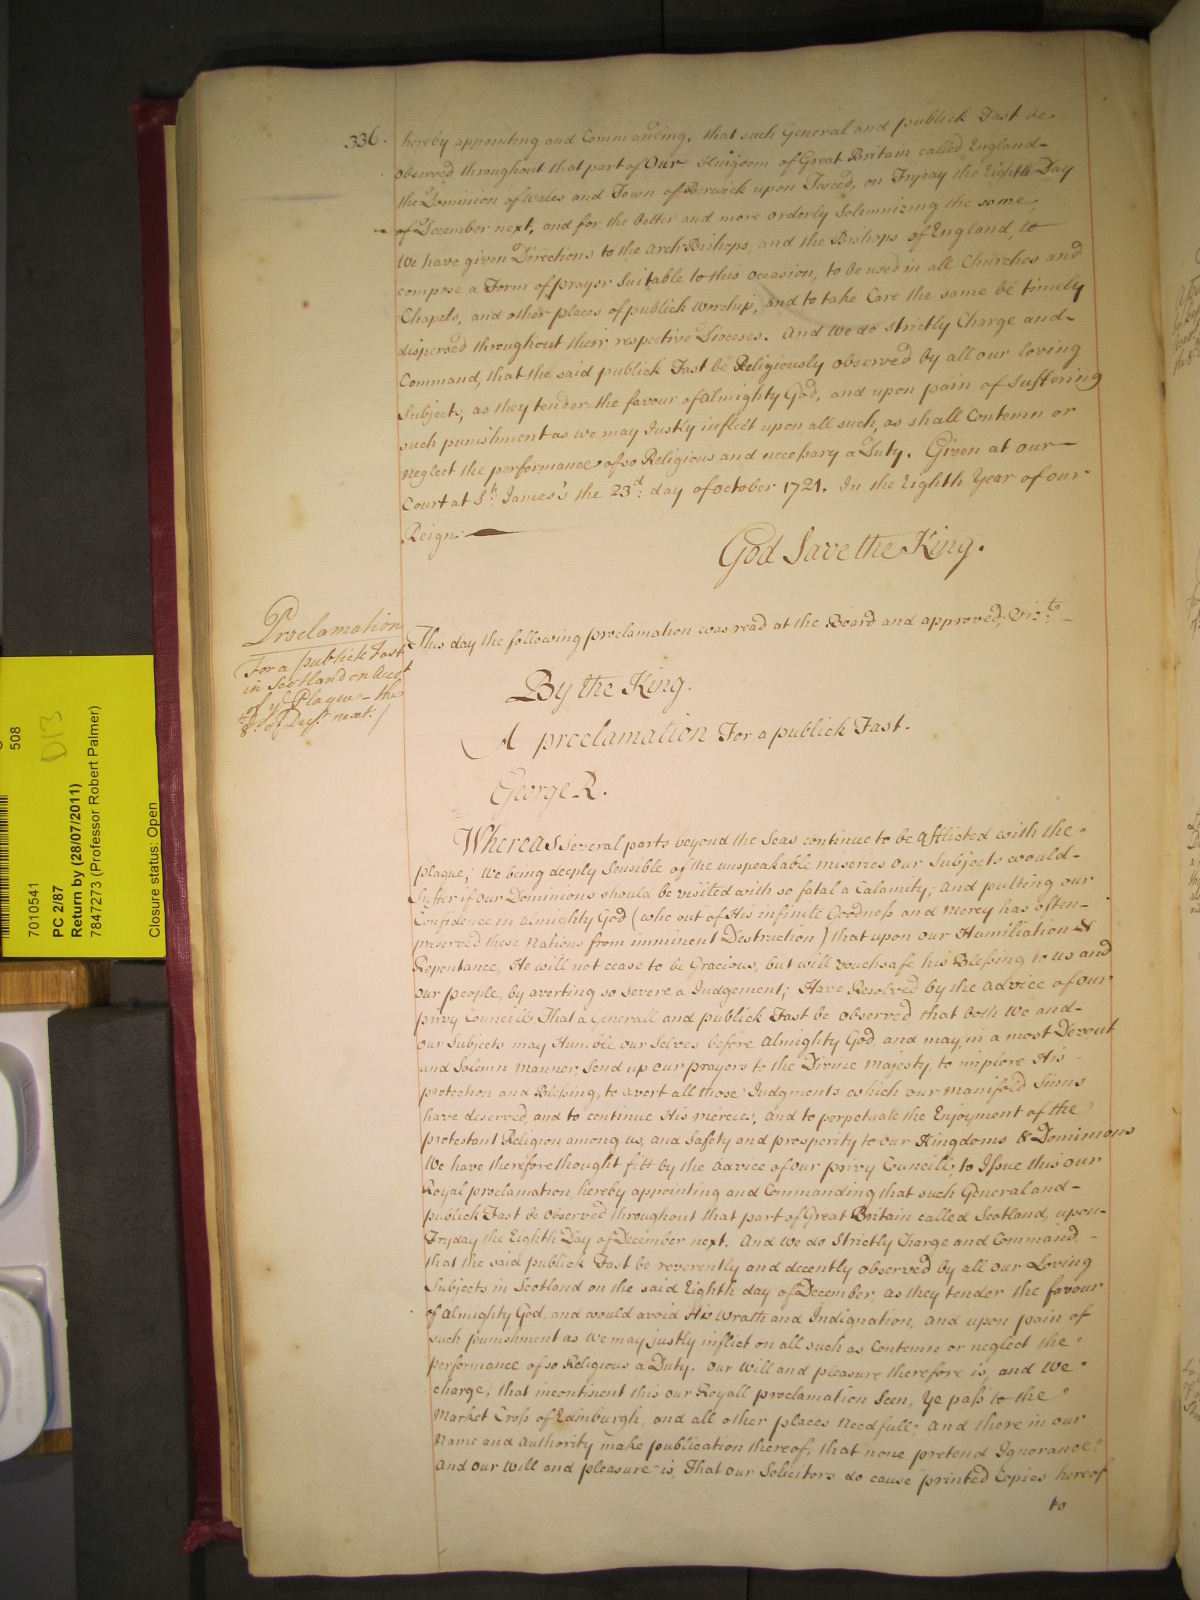 336.
hereby appointing and Commanding, that such General and publick Fast be
observed throughout that part of Our Kingdom of Great Britain called England-
the Dominion of Wales and Town of Berwick upon Tweed, on Fryday the Eighth Day
of December next, and for the better and more orderly Solemnizing the same,
We have given Directions to the Arch Bishops, and the Bishops of England, to
compose a Form of prayer Suitable to this Occasion, to be used in all Churches and
Chapels, and other places of publick worship, and to take Care the same be timely
dispersed throughout their respective Dioceses. And We do strictly Charge and-
Command, that the said publick Fast be Religiously observed by all our loving
Subjects, as they tender the favour of Almighty God, and upon pain of Suffering
such punishment as we may Justly inflict upon all such, as shall Contemn or
neglect the performance of so Religious and necessary a Duty. Given at our
Court at St. James's the 23d. day of October 1721. In the Eighth Year of our
Reign.
God Save the King.
Proclamation
For a publick Fast
in Scotland on Acct
of ye Plague - the
8th of Decr. next.
This day the following proclamation was read at the Board and approved, Vizt.
By the King.
A proclamation For a publick Fast.
George R.
Whereas Several parts beyond the Seas continue to be afflicted with the
plague; We being deeply Sensible of the unspeakable miseries our Subjects would-
Suffer if our Dominions should be visited with so fatal a Calamity; and putting our
Confidence in Almighty God (who out of His infinite Goodness and mercy has often-
preserved these Nations from imminent Destruction) that upon our Humiliation &
Repentance, He will not cease to be Gracious, but will vouchsafe his Blessing to us and
our people, by averting so severe a Judgement; Have Resolved by the Advice of our
privy Councill, That a Generall and publick Fast be observed that both We and-
our Subjects may Humble our Selves before Almighty God and may, in a most Devout
and Solemn manner, Send up our prayers to the Divine Majesty, to implore His
protection and Blessing, to avert all those Judgments which our manifold Sinns
have deserved, and to continue His mercies, and to perpetuate the Enjoyment of the
protestant Religion among us, and Safety and prosperity to our Kingdoms & Dominions
We have therefore thought fitt by the Advice of our privy Councill, to Issue this our
Royal proclamation, hereby appointing and Commanding that such General and-
publick Fast be observed throughout that part of Great Britain called Scotland, upon-
Fryday the Eighth Day of December next. And We do Strictly Charge and Command, -
that the said publick Fast be reverently and decently observed by all our Loving
Subjects in Scotland on the said Eighth day of December, as they tender the favour
of Almighty God, and would avoid His Wrath and Indignation, and upon pain of
such punishment as We may justly inflict on all such as Contemn or neglect the
performance of so Religious a Duty. Our Will and pleasure therefore is, and We
charge; that incontinent this our Royall proclamation Seen, Ye pass to the
Market Cross of Edinburgh, and all other places needfull; and there in our
Name and Authority make publication thereof, that none pretend Ignorance:
And our Will and pleasure is, That our Solicitors do cause printed Copies hereof
to
508
D13
7010541
PC 2/87
Return by (28/07/2011)
7847273 (Professor Robert Palmer)
Closure status: Open